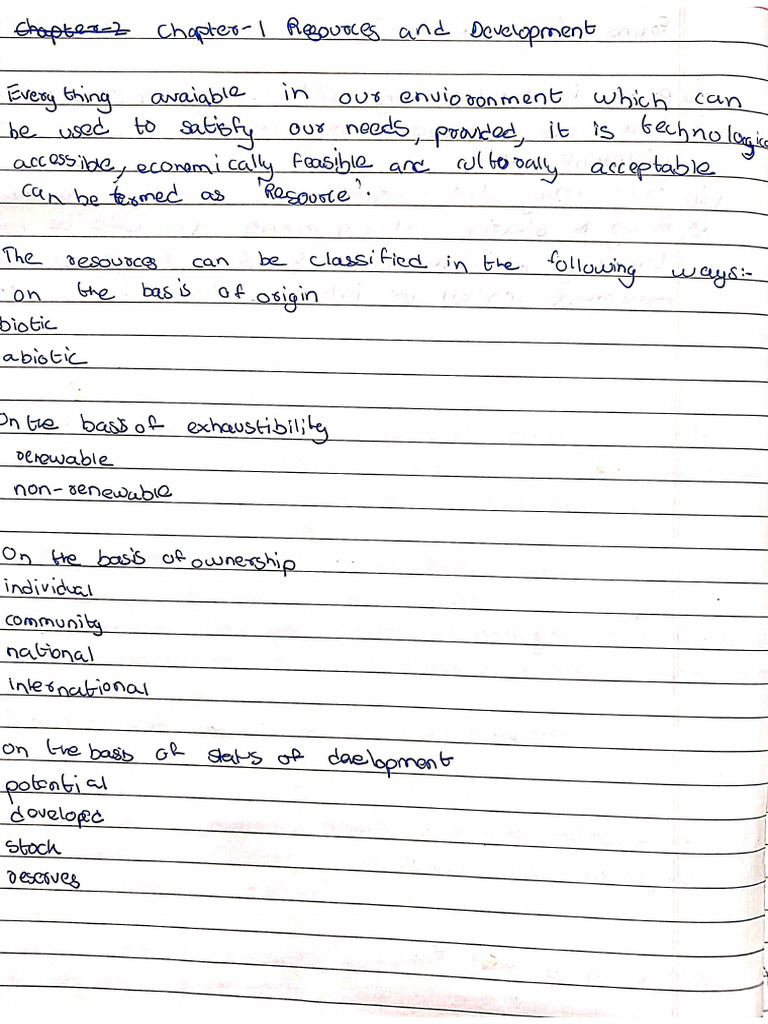 Chapter-2 Chapter-1 Resources and Development
Everything avaiable in our envioronment which can
be used to satisfy our needs, provaded, it is technologica
accessible, economically feasible and culturally acceptable
can be termed as 'Resource'.
The resources can be classified in the following ways:-
on the basis of origin
biotic
abiotic
On the basis of exhaustibility
renewable
non-renewable
On the basis of ownership
individual
community
national
international
on the basis of status of development
potential
developed
stock
reserves